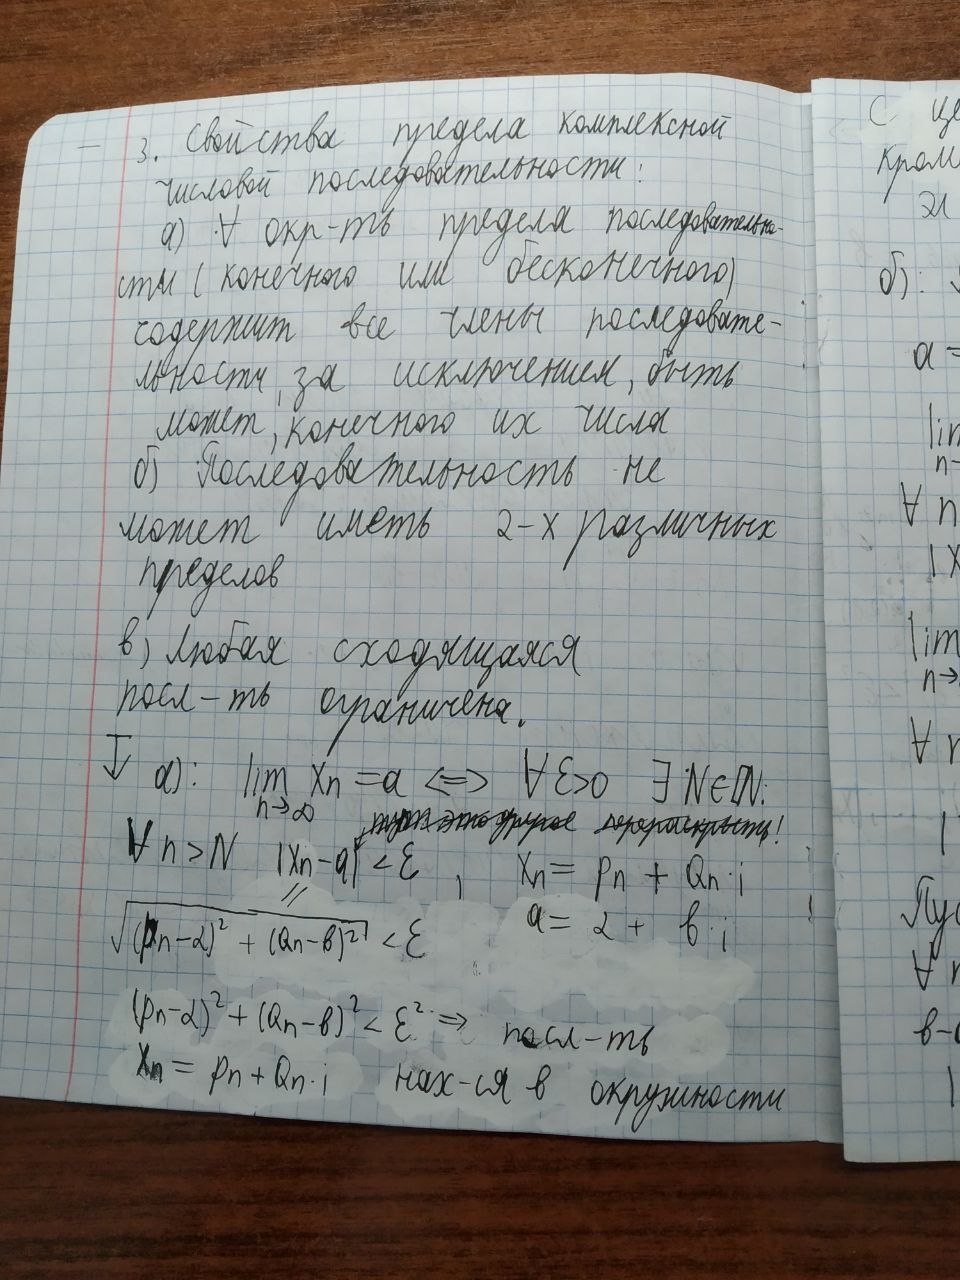 3. Свойства предела комплексной
числовой последовательности:
а) ∀ окр-ть предела последовательно-
сти (конечного или бесконечного)
содержит все члены последовате-
льности, за исключением, быть
может, конечного их числа
б) Последовательность не
может иметь 2-х различных
пределов
в) Любая сходящаяся
посл-ть ограничена.
а): lim Xn = a <=> ∀ε>0 ∃ N∈ℕ:
n→∞
∀ n > N |Xn-a| < ε, Xn = pn + Qn·i
√(pn-2)² + (Qn-в)² < ε a = 2 + в·i
(pn-2)² + (Qn-в)² < ε² => посл-ть
Xn = pn + Qn·i нах-ся в окружности
С це
кром
б):
a =
lim
n→
∀ n
|X
lim
n→
∀ n
Пус
∀ n
в-
|